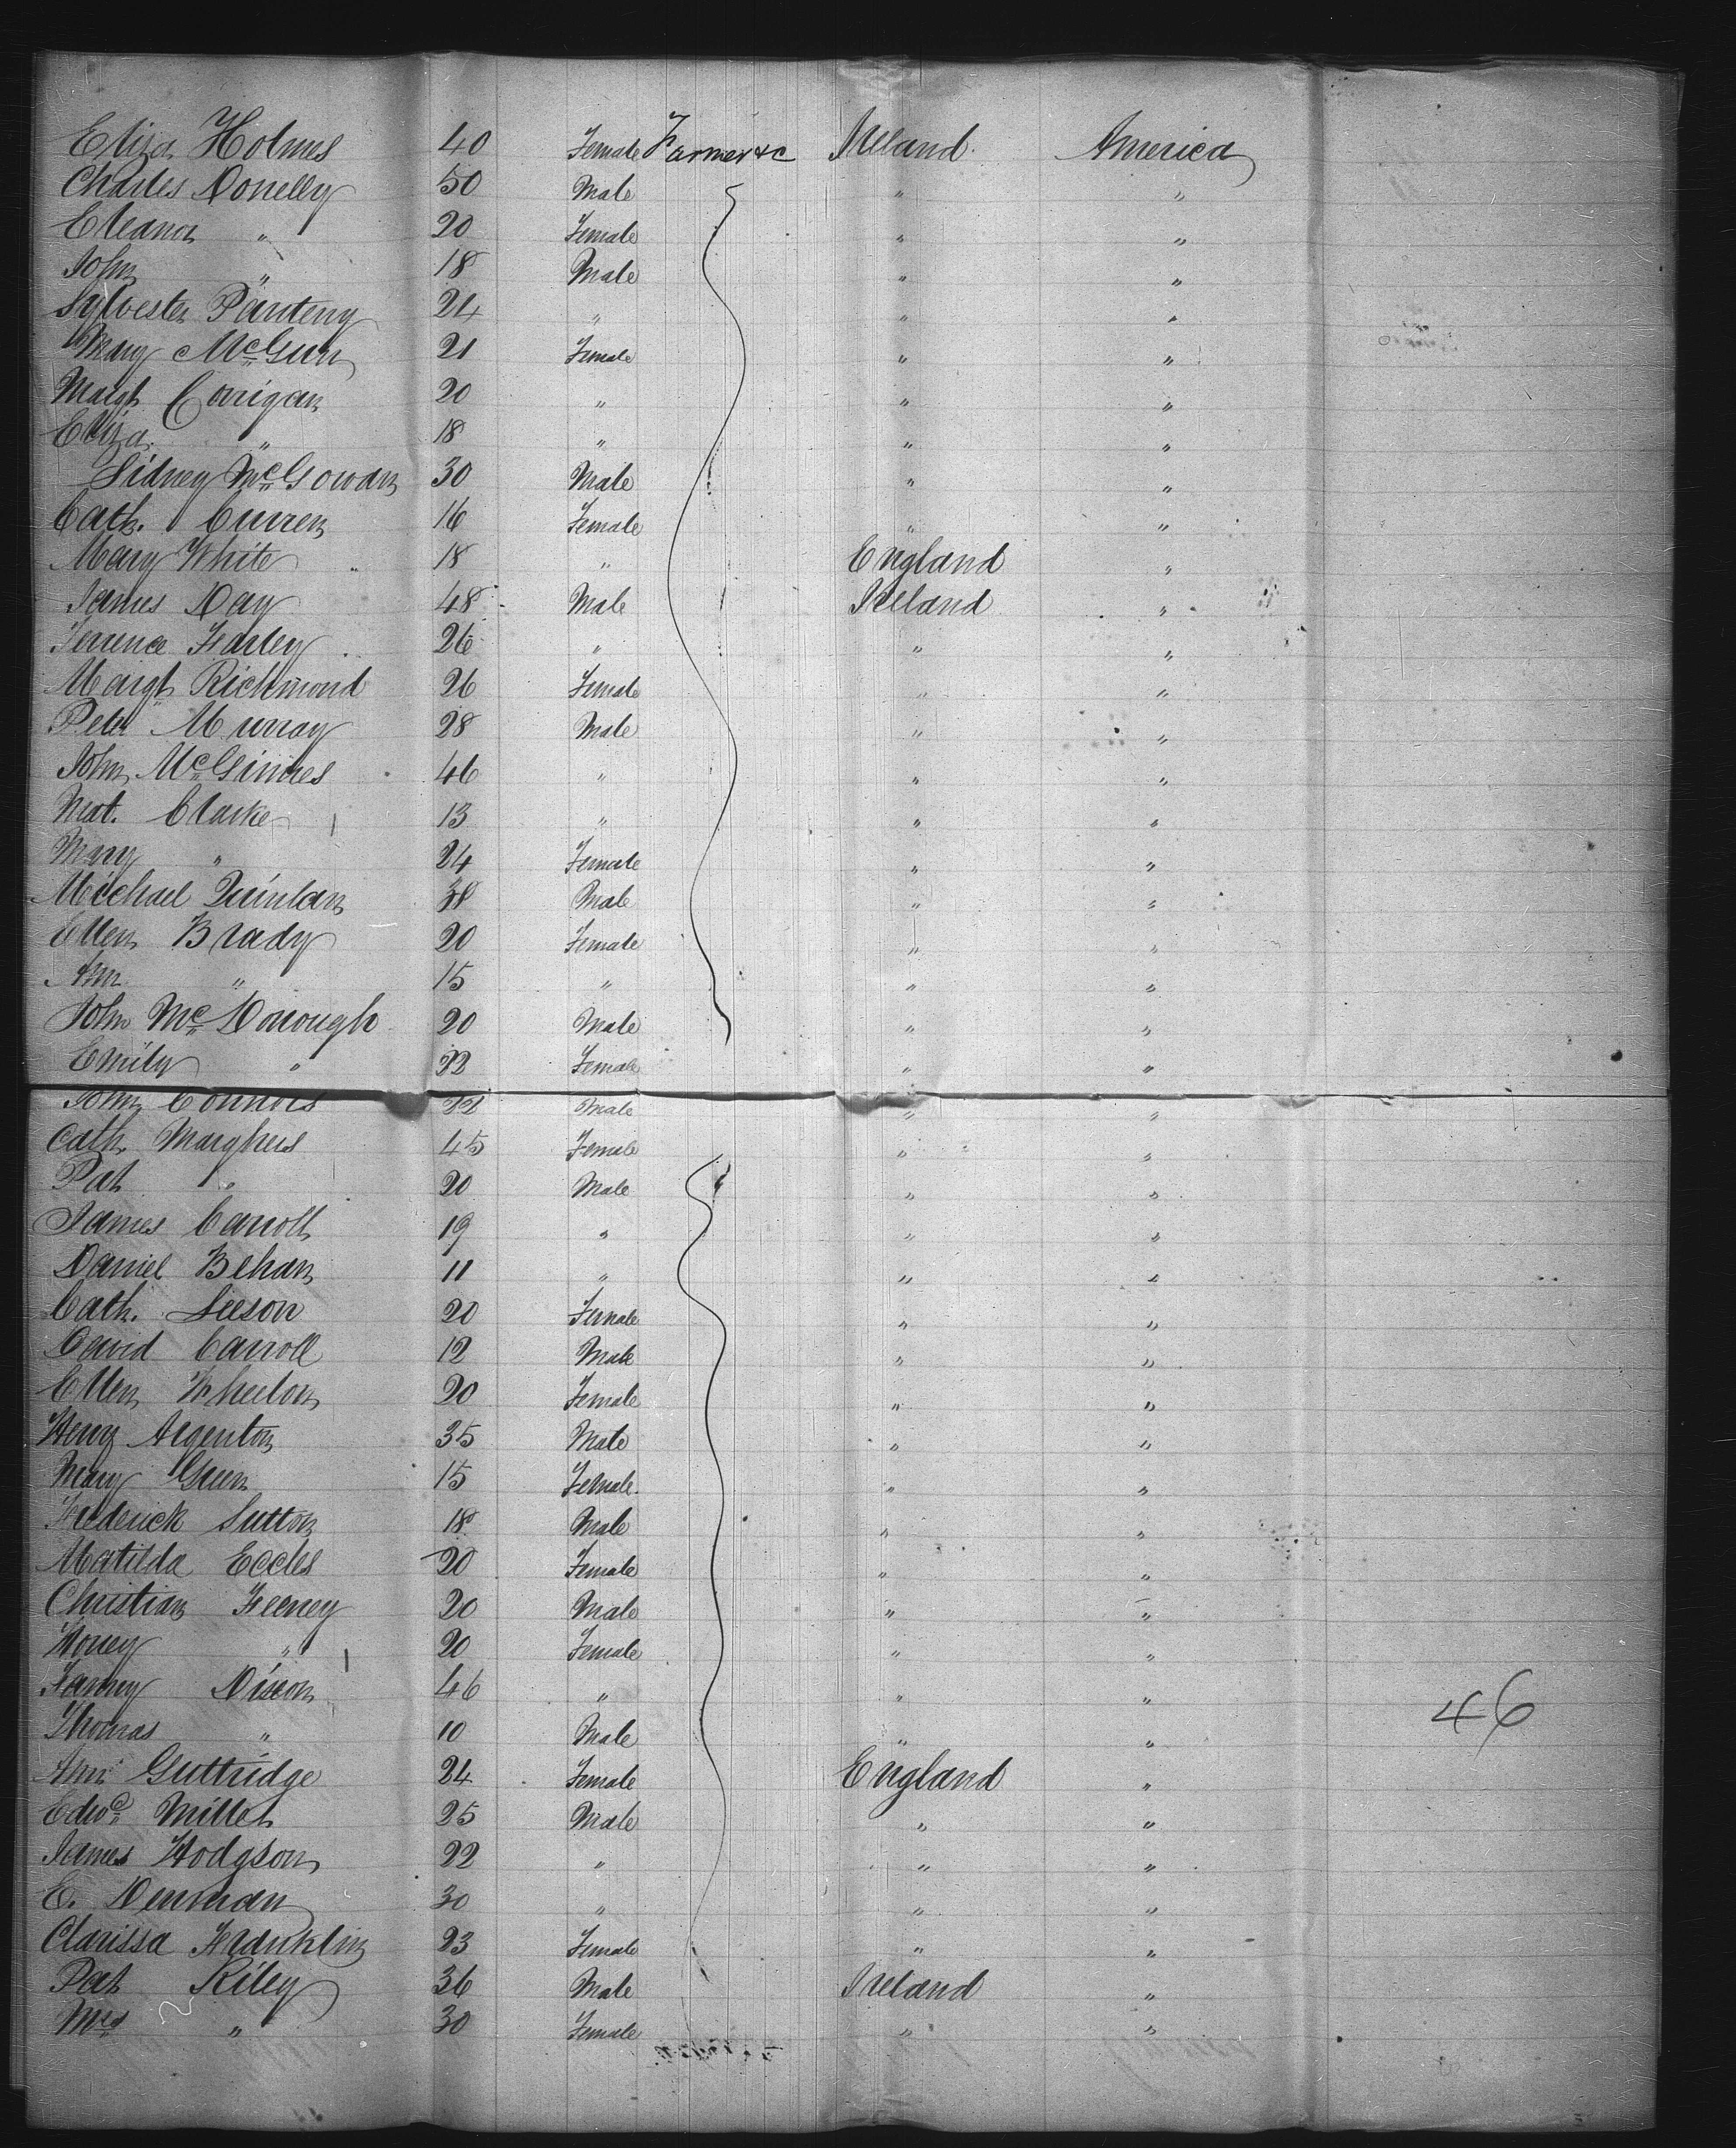 Eliza Holmes 40 Female Farmer &c Ireland America
Charles Donelly 50 Male " "
Eleanor " 20 Female " "
John " 18 Male " "
Sylvester Panteny 24 " " "
Mary McGurn 21 Female " "
Margt Corrigan 20 " " "
Eliza " 18 " " "
Sidney McGowan 30 Male " "
Cath. Curren 16 Female " "
Mary White 18 " England "
James Day 48 Male Ireland "
Terrence Farley 26 " " "
Margt Richmond 26 Female " "
Peter Murray 28 Male " "
John McGinnes 46 " " "
Mat. Clarke 13 " " "
Mary " 24 Female " "
Michael Quinlan 38 Male " "
Ellen Brady 20 Female " "
Ann " 15 " " "
John McDonough 20 Male " "
Emily " 22 Female " "
John Connors 22 Male " "
Cath. Marghers 45 Female " "
Pat " 20 Male " "
James Carroll 19 " " "
Daniel Behan 11 " " "
Cath. Leeson 20 Female " "
David Carroll 12 Male " "
Ellen Wheelon 20 Female " "
Henry Argenton 35 Male " "
Mary Green 15 Female " "
Frederick Sutton 18 Male " "
Matilda Eccles 20 Female " "
Christian Feeney 20 Male " "
Honey " 20 Female " "
Fanny Dixon 46 " " "
Thomas " 10 Male " "
46
Ann Guttridge 24 Female England "
Edwd Miller 25 Male " "
James Hodgson 22 " " "
E. Denman 30 " " "
Clarissa Franklin 23 Female " "
Pat Riley 36 Male Ireland "
Mrs " 30 Female " "